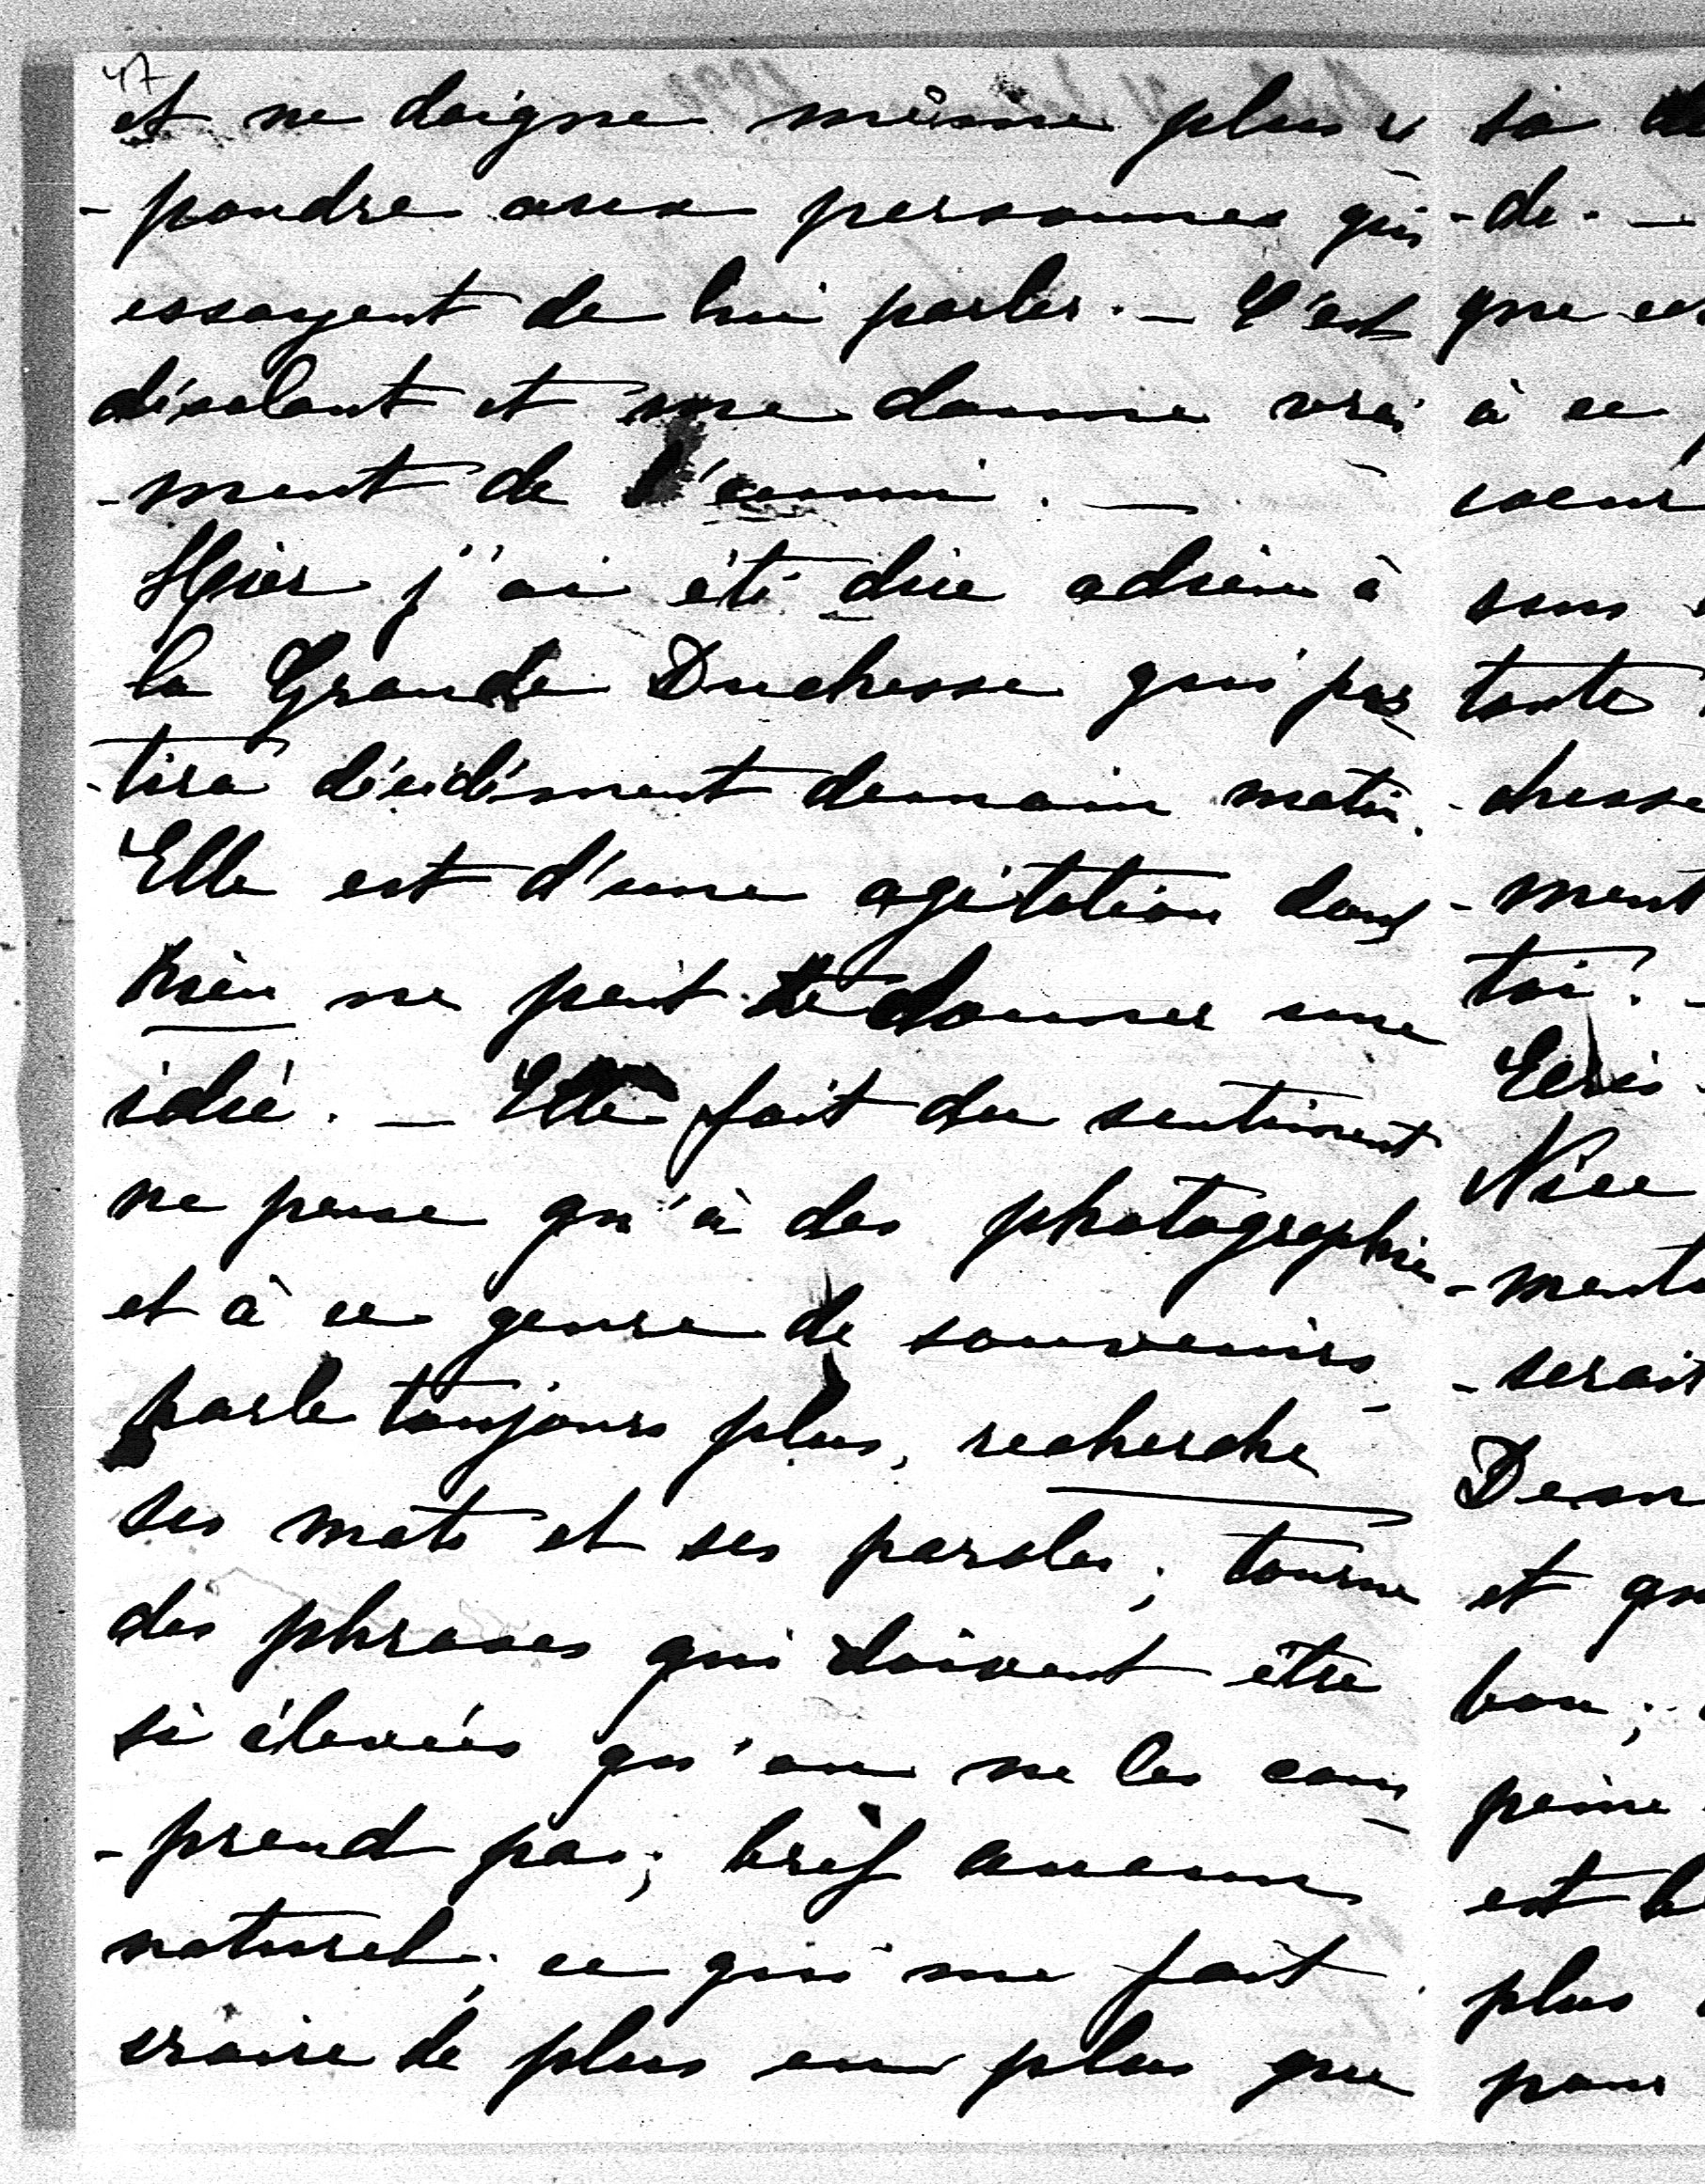 47
et ne daigne même plus ré
-pondre aux personnes qui
essayent de lui parler. — C'est
désolant et me donne vrai
-ment de l'ennui. —
Hier j'ai été dire adieu à
la Grande Duchesse qui par
-tira décidément demain matin.
Elle est d'une agitation dont
rien ne peut te donner une
idée. — Elle fait du sentiment
ne pense qu'à des photographies
et à ce genre de souvenirs,
parle toujours plus, recherche
ses mots et ses paroles; tourne
des phrases qui doivent être
si élevées qu'on ne les com
-prend pas; bref aucun
naturel; ce qui me fait
craire de plus en plus que
sa
-de. —
que
à ce
coeur
sans
toute
-chesse
-ment
toi. —
Ecris
Nice
-ment
-serait
et
bon;
peine
est
plus
pour